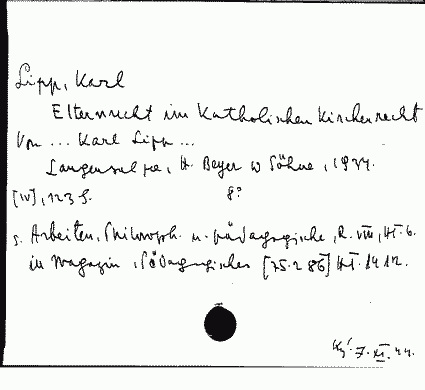 Lipp, Karl
Elternrecht im Katholischen Kirchenrecht
Von ... Karl Lipp ...
Langensalza, H. Beyer u Söhne, 1934.
[IV], 123 S. 8°
s. Arbeiten, Philosoph. u. pädagogische, R. VIII, Ht. 6.
in Magazin, Pädagogisches [75.2 86] Ht. 1412.
7. XI. 44.